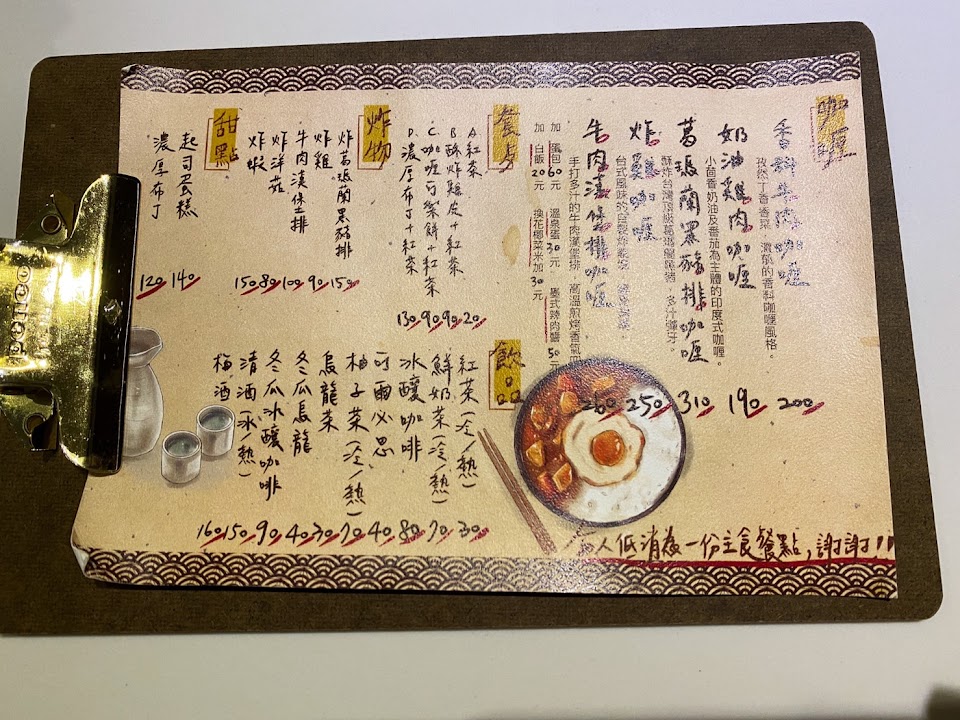 咖喱
香料牛肉咖喱 200
孜然丁香香菜，濃郁的香料咖喱風格。
奶油雞肉咖喱 190
小茴香奶油及番茄為主體的印度式咖喱。
葛瑪蘭黑豬排咖喱 310
酥炸台灣頂級葛瑪蘭黑豬，多汁彈牙。
炸雞咖喱 250
台式風味的自製炸雞塊
牛肉漢堡排咖喱 260
手打多汁的牛肉漢堡排 高溫煎烤香氣
加 蛋包60元 溫泉蛋30元 墨式辣肉醬50元
加 白飯20元 換花椰菜米加30元
A紅茶 20
B酥炸雞皮+紅茶 90
C咖喱可樂餅+紅茶 90
D濃厚布丁+紅茶 130
炸物
炸葛瑪蘭黑豬排 150
炸雞 90
牛肉漢堡排 100
炸洋菇 80
炸蝦 150
甜點
起司蛋糕 140
濃厚布丁 120
飲品
紅茶(冷/熱) 30
鮮奶茶(冷/熱) 70
冰釀咖啡 80
可爾必思 40
柚子茶(冷/熱) 70
烏龍茶 30
冬瓜烏龍 40
冬瓜冰釀咖啡 90
清酒(冰/熱) 150
梅酒 160
人低消為一份主食餐點，謝謝!!